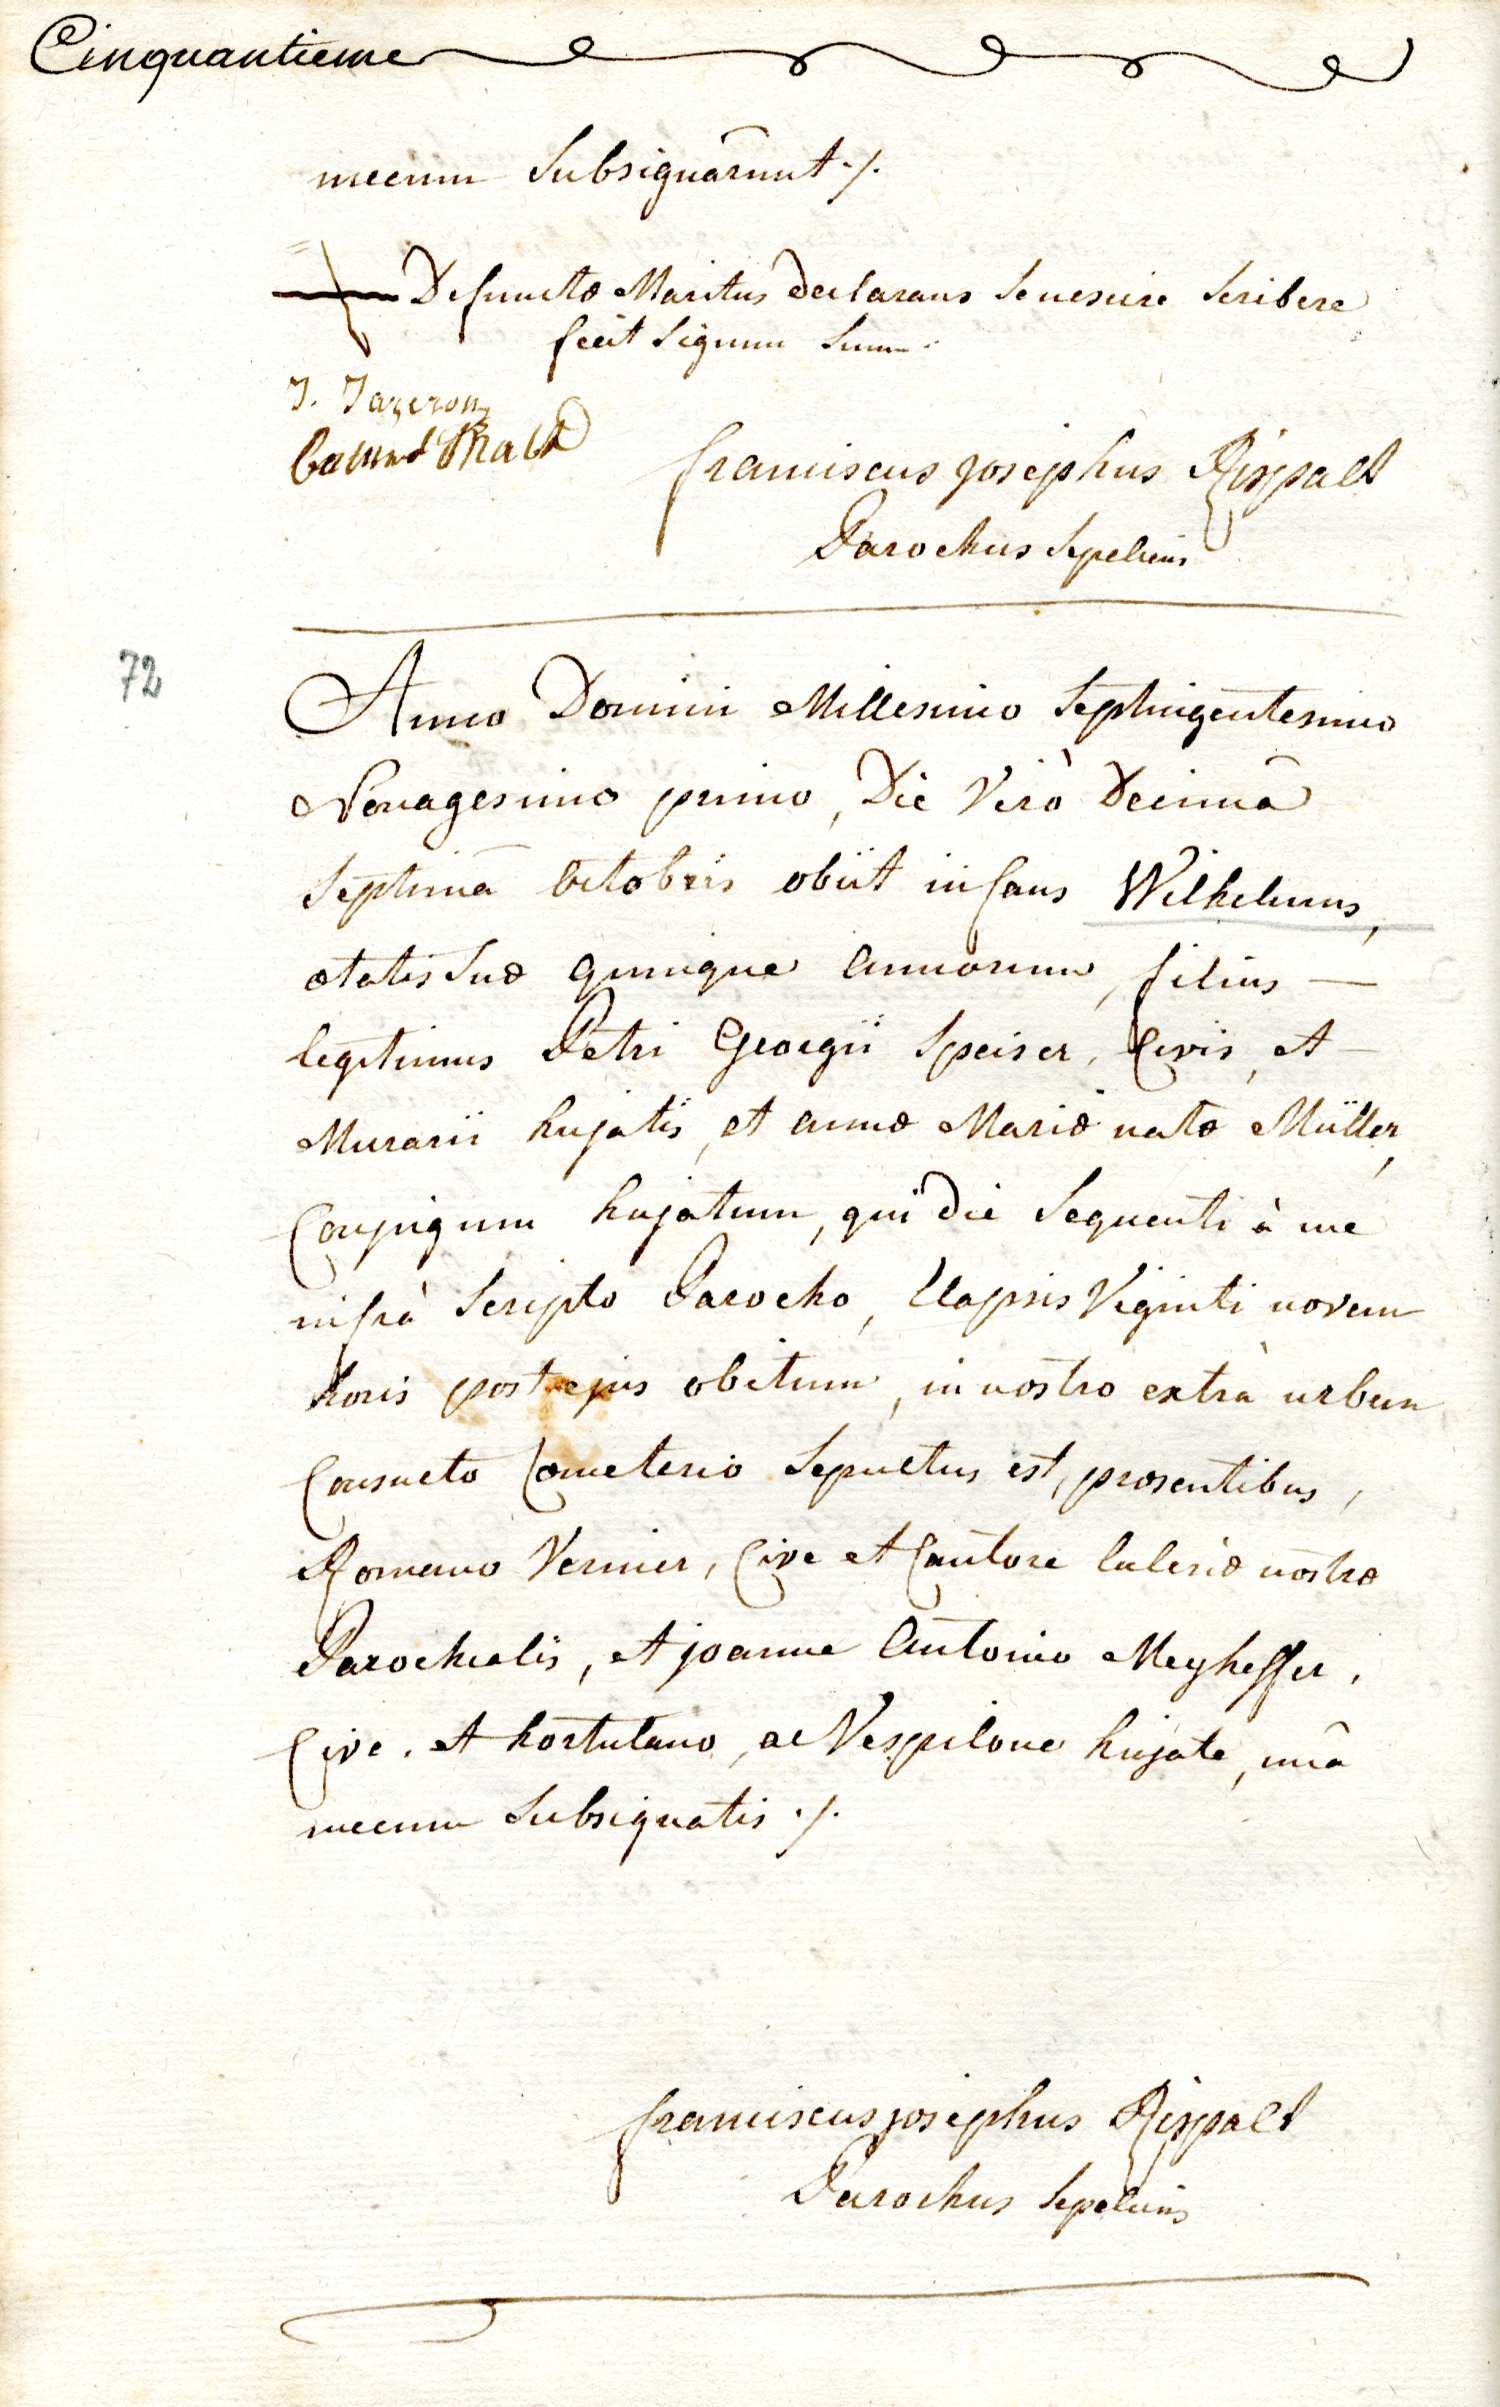 Cinquantieme
mecum Subsignarunt ./.
Defunctæ Maritus declarans se nescire scribere
fecit signum suum.
J. Jazeron
franciscus josephus Rispalt
Parochus sepeliens
72
Anno Domini Millesimo septingentesimo
Nonagesimo primo, Die Verò Decimâ
septimâ octobris obiit infans Wilhelmus,
ætatis suæ quinque annorum, filius —
legitimus Petri Georgii Speiser, Civis, et —
Murarii hujatis, et annæ Mariæ natæ Müller,
Conjugum hujatum, qui die sequenti à me
infrà scripto Parocho, Elapsis Viginti novem
horis post ejus obitum, in nostro extrà urbem
Consueto Cœmeterio sepultus est, præsentibus,
Romano Vernier, Cive et Cantore Eclesiæ nostræ
Parochialis, et joanne Antonio Meyheffer,
Cive, et hortulano, ac Vespilone hujate, unâ
mecum subsignatis ./.
franciscus josephus Rispalt
Parochus sepeliens